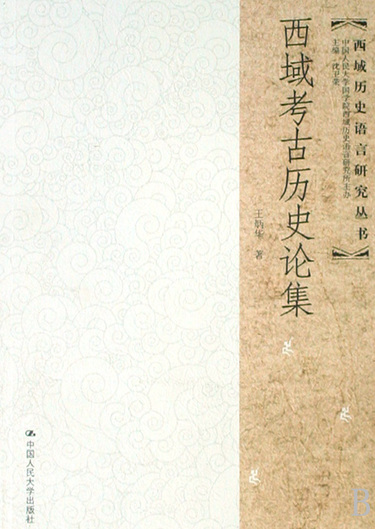 西域历史语言研究丛书
中国人民大学国学院西域历史语言研究所主办
主编 沈卫荣
西域考古历史论集
王炳华 著
中国人民大学出版社